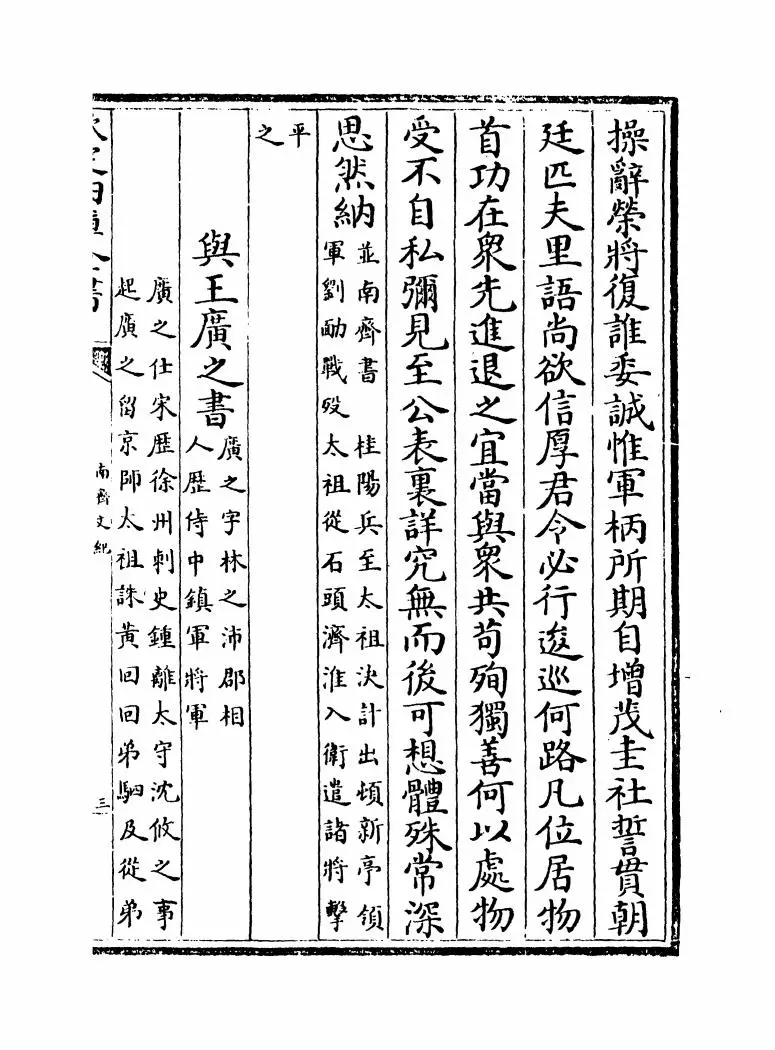 操辭榮將復誰委誠惟軍柄所期自增茂圭社誓貫朝
廷匹夫里語尚欲信厚君令必行逡巡何路凡位居物
首功在衆先進退之宜當與衆共苟殉獨善何以處物
受不自私彌見至公表裏詳究無而後可想體殊常深
思然納
並南齊書　桂陽兵至太祖決計出頓新亭領
軍劉勔戰歿太祖從石頭濟淮入衛遣諸將擊
平
之
與王廣之書
廣之字林之沛郡相
人歷侍中鎮軍將軍
廣之仕宋歷徐州刺史鍾離太守沈攸之事
起廣之留京師太祖誅黃回回弟駟及從弟
欽定四庫全書
南齊文紀
三